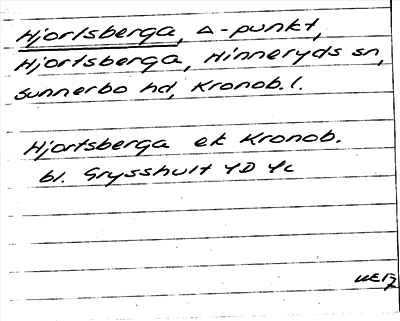 Hjortsberga, Δ-punkt,
Hjortsberga, Hinneryds sn,
Sunnerbo hd, Kronob. l.
Hjortsberga ek Kronob.
bl. Grysshult 4D 4c